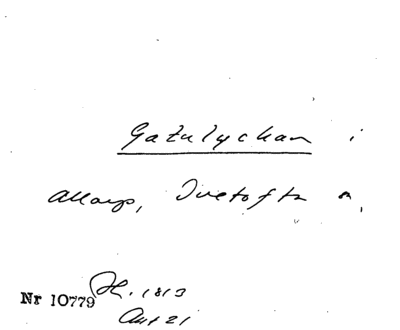 Gatulyckan i
Allarp, Ivetofta s,
Nr 10779 H. 1813
Akt 21